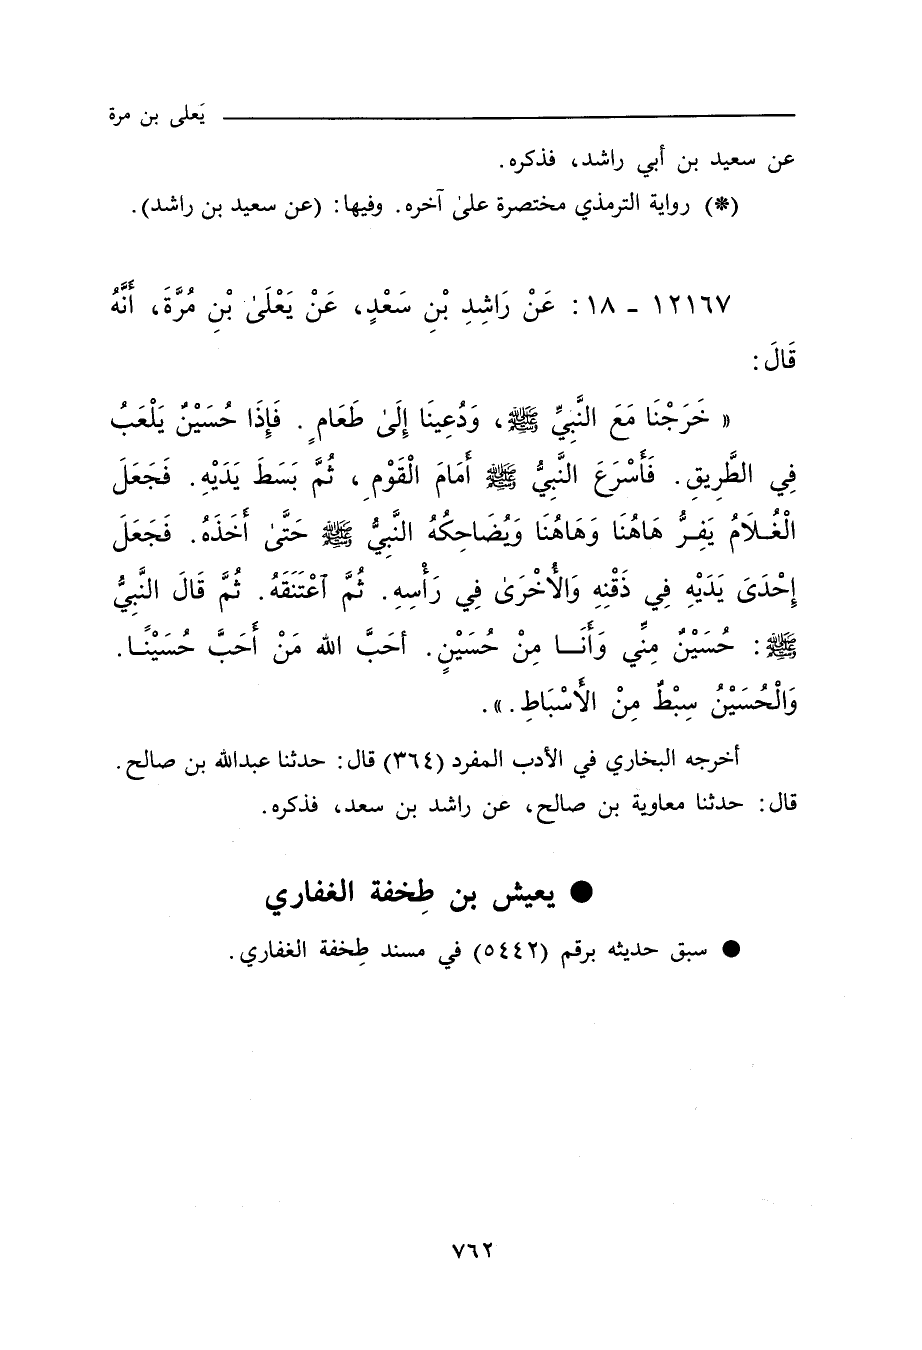 يَعلى بن مرة
عن سعيد بن أبي راشد، فذكره.
(*) رواية الترمذي مختصرة علىٰ آخره. وفيها: (عن سعيد بن راشد).
١٢١٦٧ - ١٨: عَنْ رَاشِدِ بْنِ سَعْدٍ، عَنْ يَعْلَىٰ بْنِ مُرَّةَ، أَنَّهُ
قَالَ:
« خَرَجْنَا مَعَ النَّبِيِّ ﷺ، وَدُعِينَا إِلَىٰ طَعَامٍ. فَإِذَا حُسَيْنٌ يَلْعَبُ
فِي الطَّرِيقِ. فَأَسْرَعَ النَّبِيُّ ﷺ أَمَامَ الْقَوْمِ، ثُمَّ بَسَطَ يَدَيْهِ. فَجَعَلَ
الْغُـلَامُ يَفِـرُّ هَاهُنَا وَهَاهُنَا وَيُضَاحِكُهُ النَّبِيُّ ﷺ حَتَّىٰ أَخَذَهُ. فَجَعَلَ
إِحْدَىٰ يَدَيْهِ فِي ذَقْنِهِ وَالْأُخْرَىٰ فِي رَأْسِهِ. ثُمَّ ٱعْتَنَقَهُ. ثُمَّ قَالَ النَّبِيُّ
ﷺ: حُسَيْنٌ مِنِّي وَأَنَـا مِنْ حُسَيْنٍ. أحَبَّ الله مَنْ أَحَبَّ حُسَيْنًـا.
وَالْحُسَيْنُ سِبْطٌ مِنْ الْأَسْبَاطِ.».
أخرجه البخاري في الأدب المفرد (٣٦٤) قال: حدثنا عبدالله بن صالح.
قال: حدثنا معاوية بن صالح، عن راشد بن سعد، فذكره.
● يعيش بن طِخفة الغفاري
● سبق حديثه برقم (٥٤٤٢) في مسند طِخفة الغفاري.
٧٦٢